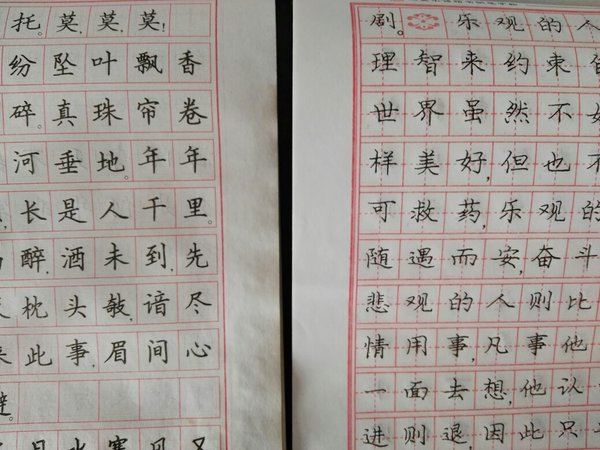 托。莫,莫,莫!
纷坠叶飘香
碎。真珠帘卷
河垂地。年年
长是人千里。
醉,酒未到,先
枕头敧,谙尽
此事,眉间心
避。
剧。乐观的人
理智来约束
世界虽然不
样美好,但也不
可救药,乐观的
随遇而安,奋斗
悲观的人则比
情用事,凡事他
一面去想,他认
进则退,因此只